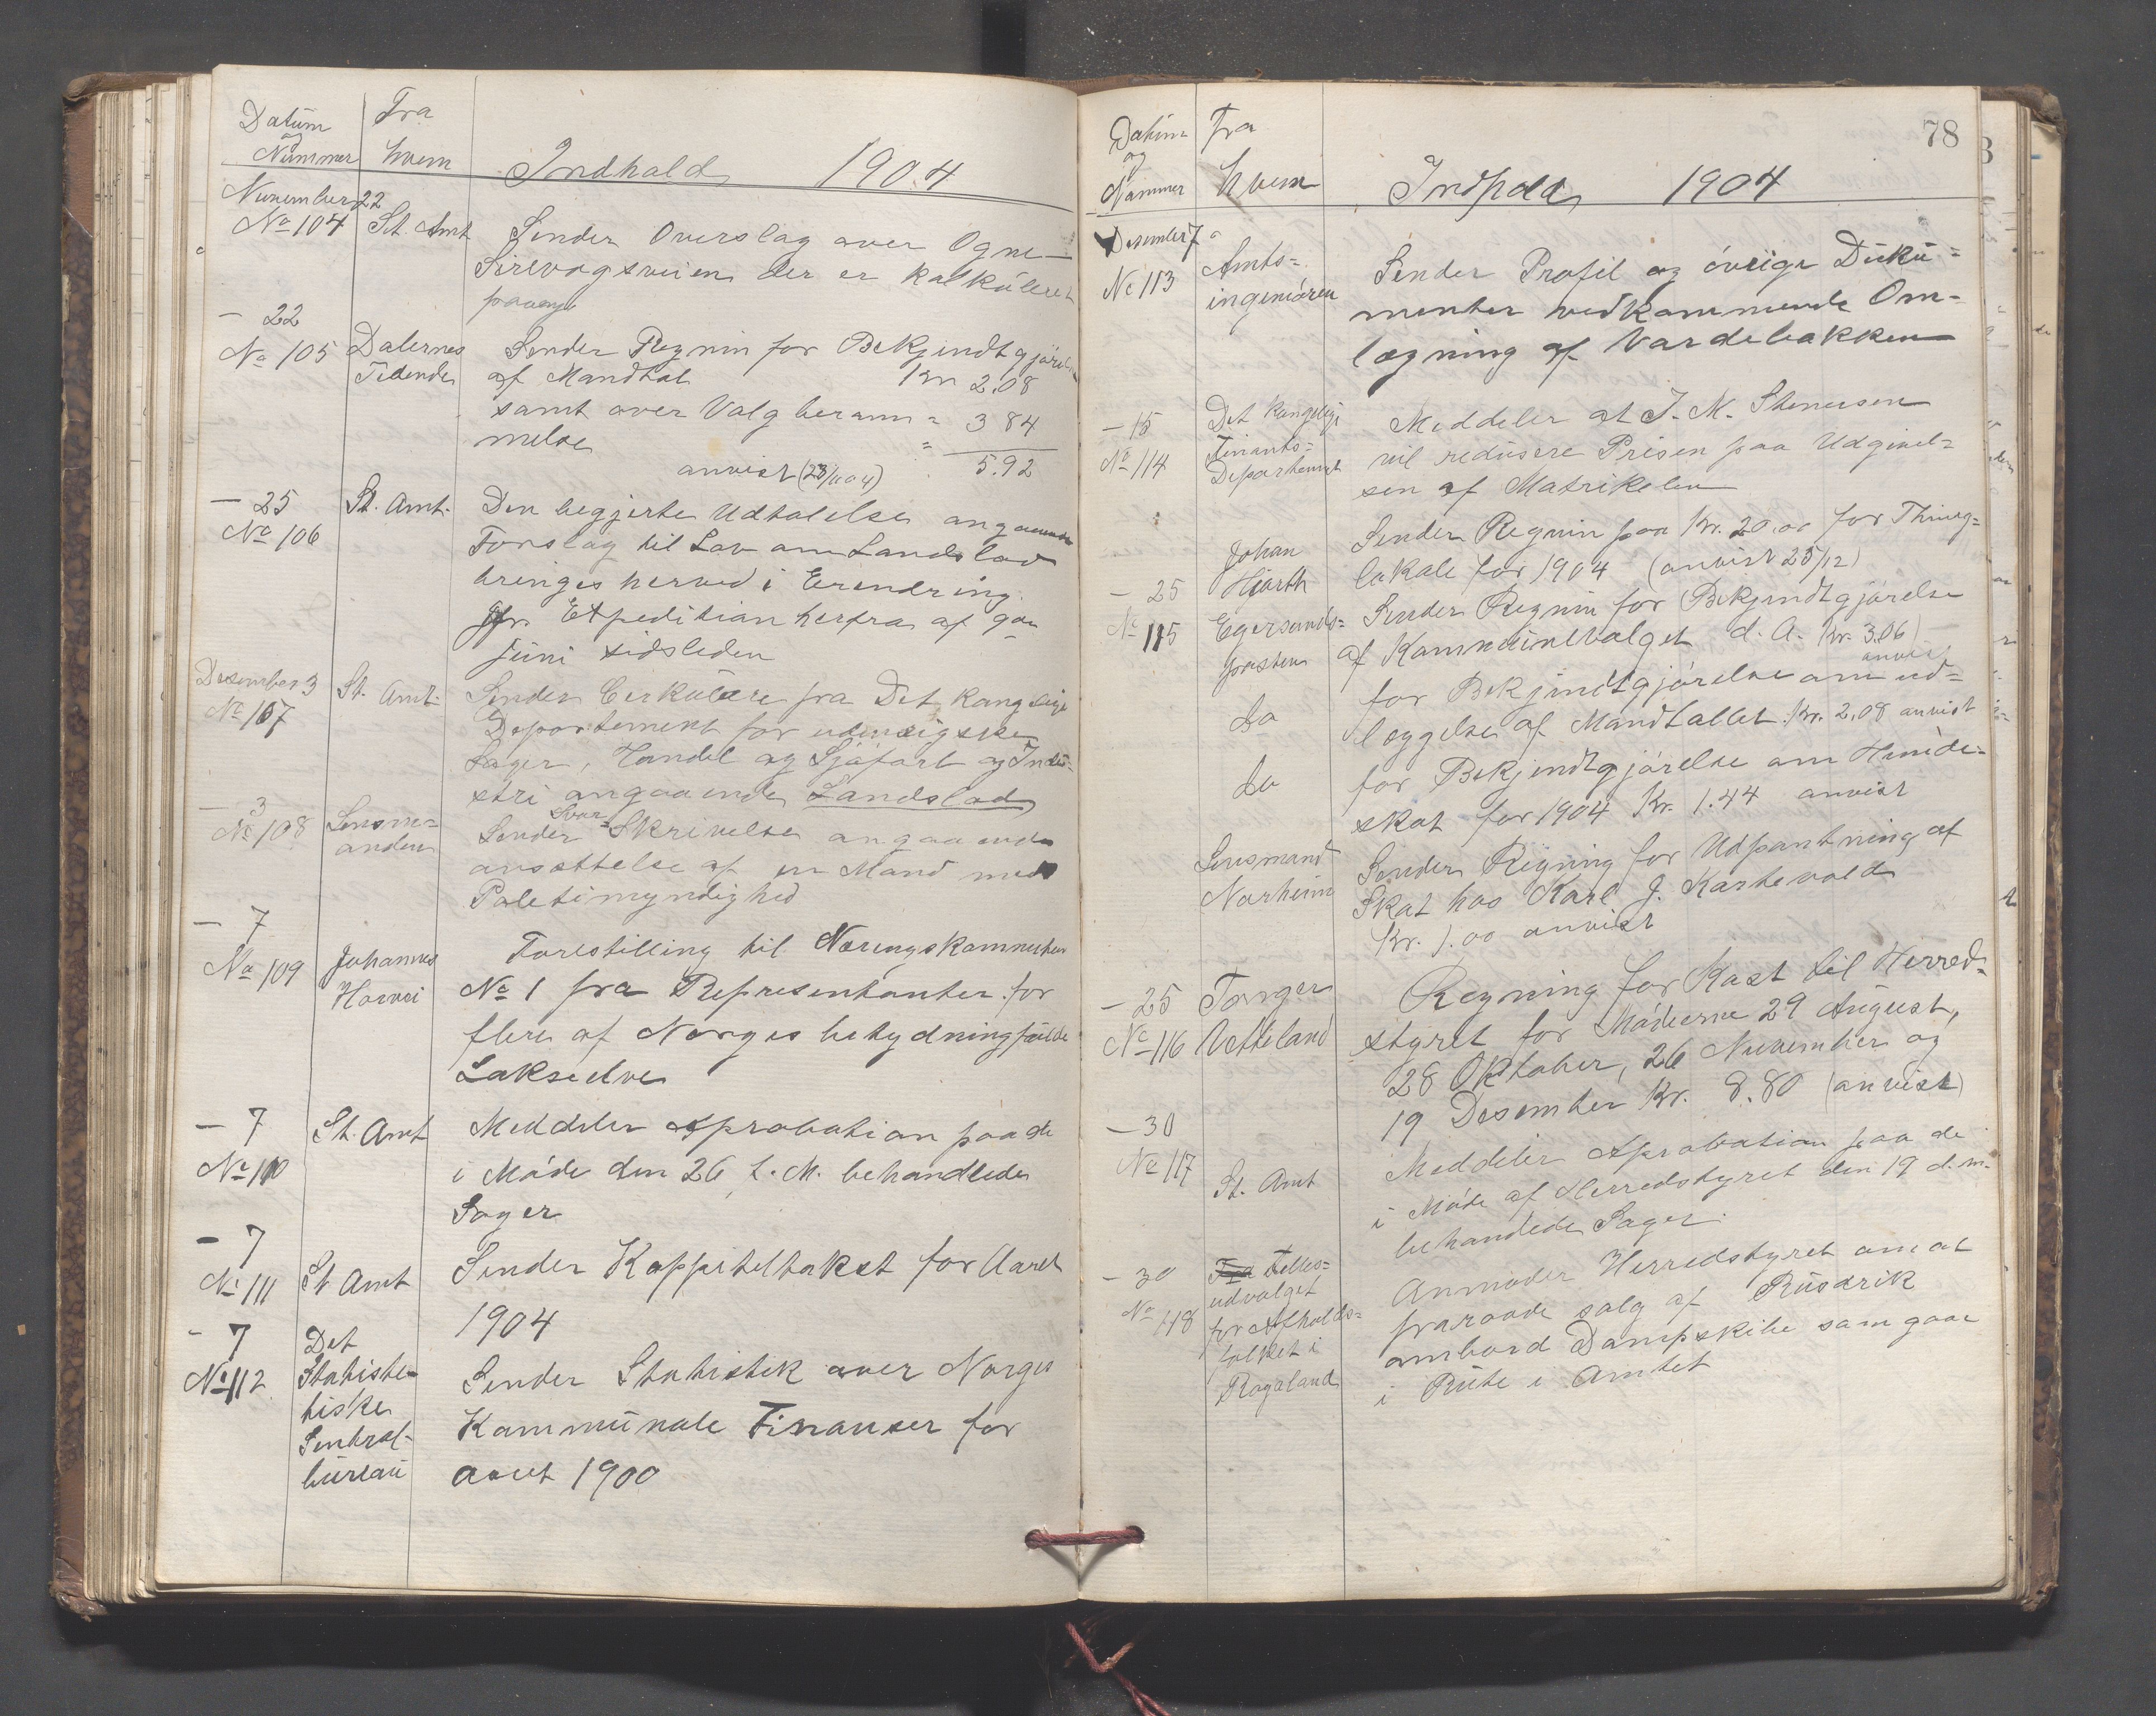 Datum
og
Nummer
Fra
hvem
Indhold 1904
November 22
No 104 St. Amt
Sender Overslag over Ogne-
Sirevogsveien der er kalkúleret
No 105
— 22
Dalernes
Tidende
Sender Regnin for Bekjendtgjörelse
af Mandtal Kr 2.08
samt over Valg beram = 3 84
melse = 5.92
anvist (23/11 04)
— 25
No 106
St. Amt.
Den begjerte Udtalelse angaaende
Forslag til Lov om Landslod
bringes herved i Erendring.
Jfr. Expedition herfra af 9de
Júni sidsleden
Desember 3
No 107
St. Amt.
Sender Cerkúlære fra Det kongelige
Departement for udenrigske
Sager, Handel og Sjófart og Indú-
stri angaaende Landslod
— 3
No 108
Lensm=
anden
Sender Svar= Skrivelse angaaende
ansettelse af en Mand med
Poletimyndighed
— 7
No 109
Johannes
Forestilling til Næringskommiteen
No 1 fra Representanter for
flere af Norges betydningfúlde
Lakseelve
— 7
No 110
St. Amt
Meddeler Aprobation paa de
i Móde den 26 f. M. behandlede
Sager
— 7
No 111
St Amt
Sender Kappiteltakst for Aaret
1904
— 7
No 112
Det
Statiste-
tiske
Sentral-
búreaú
Sender Statistik over Norges
Kommúnale Finanser for
aaret 1900
78
Datúm
og
Nummer
Fra
hvem
Indhold 1904
Desember 7
No 113
Amts=
ingeniören
Sender Profil og óvrige Dúkú=
menter vedkommende Om-
lægning af Vardebakken
— 15
No 114
Det kongelige
Finants=
Departement
Meddeler at J. M. Stenersen
vil redúsere Prisen paa Udgivel=
sen af Matrikelen
Johan
Hjorth
Sender Regnin paa Kr. 20.00 for Thing=
lokale for 1904 (anvist 25/12)
— 25
No 115
Egersunds=
posten
Sender Regnin for Bekjendtgjörelse
af Kommúnevalget d. A. Kr. 3.06)
anvist
Do
for Bekjendtgjörelse om ud=
læggelse af Mandtallet. Kr. 2.08 anvist
Do
for Bekjendtgjörelse om Húnde=
skat for 1904 Kr. 1.44 anvist
Lensmand
Norheim
Sender Regning for Udpantning af
Skat hos Karl J. Kartevold
Kr. 1.00 anvist
— 25
No 116
Torger
Vetteland
Regning for Kost til Herred-
styret for Móderne 29 Aúgust,
28 Oktober, 26 November og
19 Desember Kr. 8.80 (anvist)
— 30
No 117
St. Amt
Meddeler Aprobation paa de
i Móde af Herredstyret den 19 d. m.
behandlede Sager.
— 30
No 118
Fra Felles=
udvalget
for Afholds=
folket i
Rogaland
Anmoder Herredstyret om at
fraraade salg af Rúsdrik
ombord Dampskibe som gaar
i Rúte i Amtet